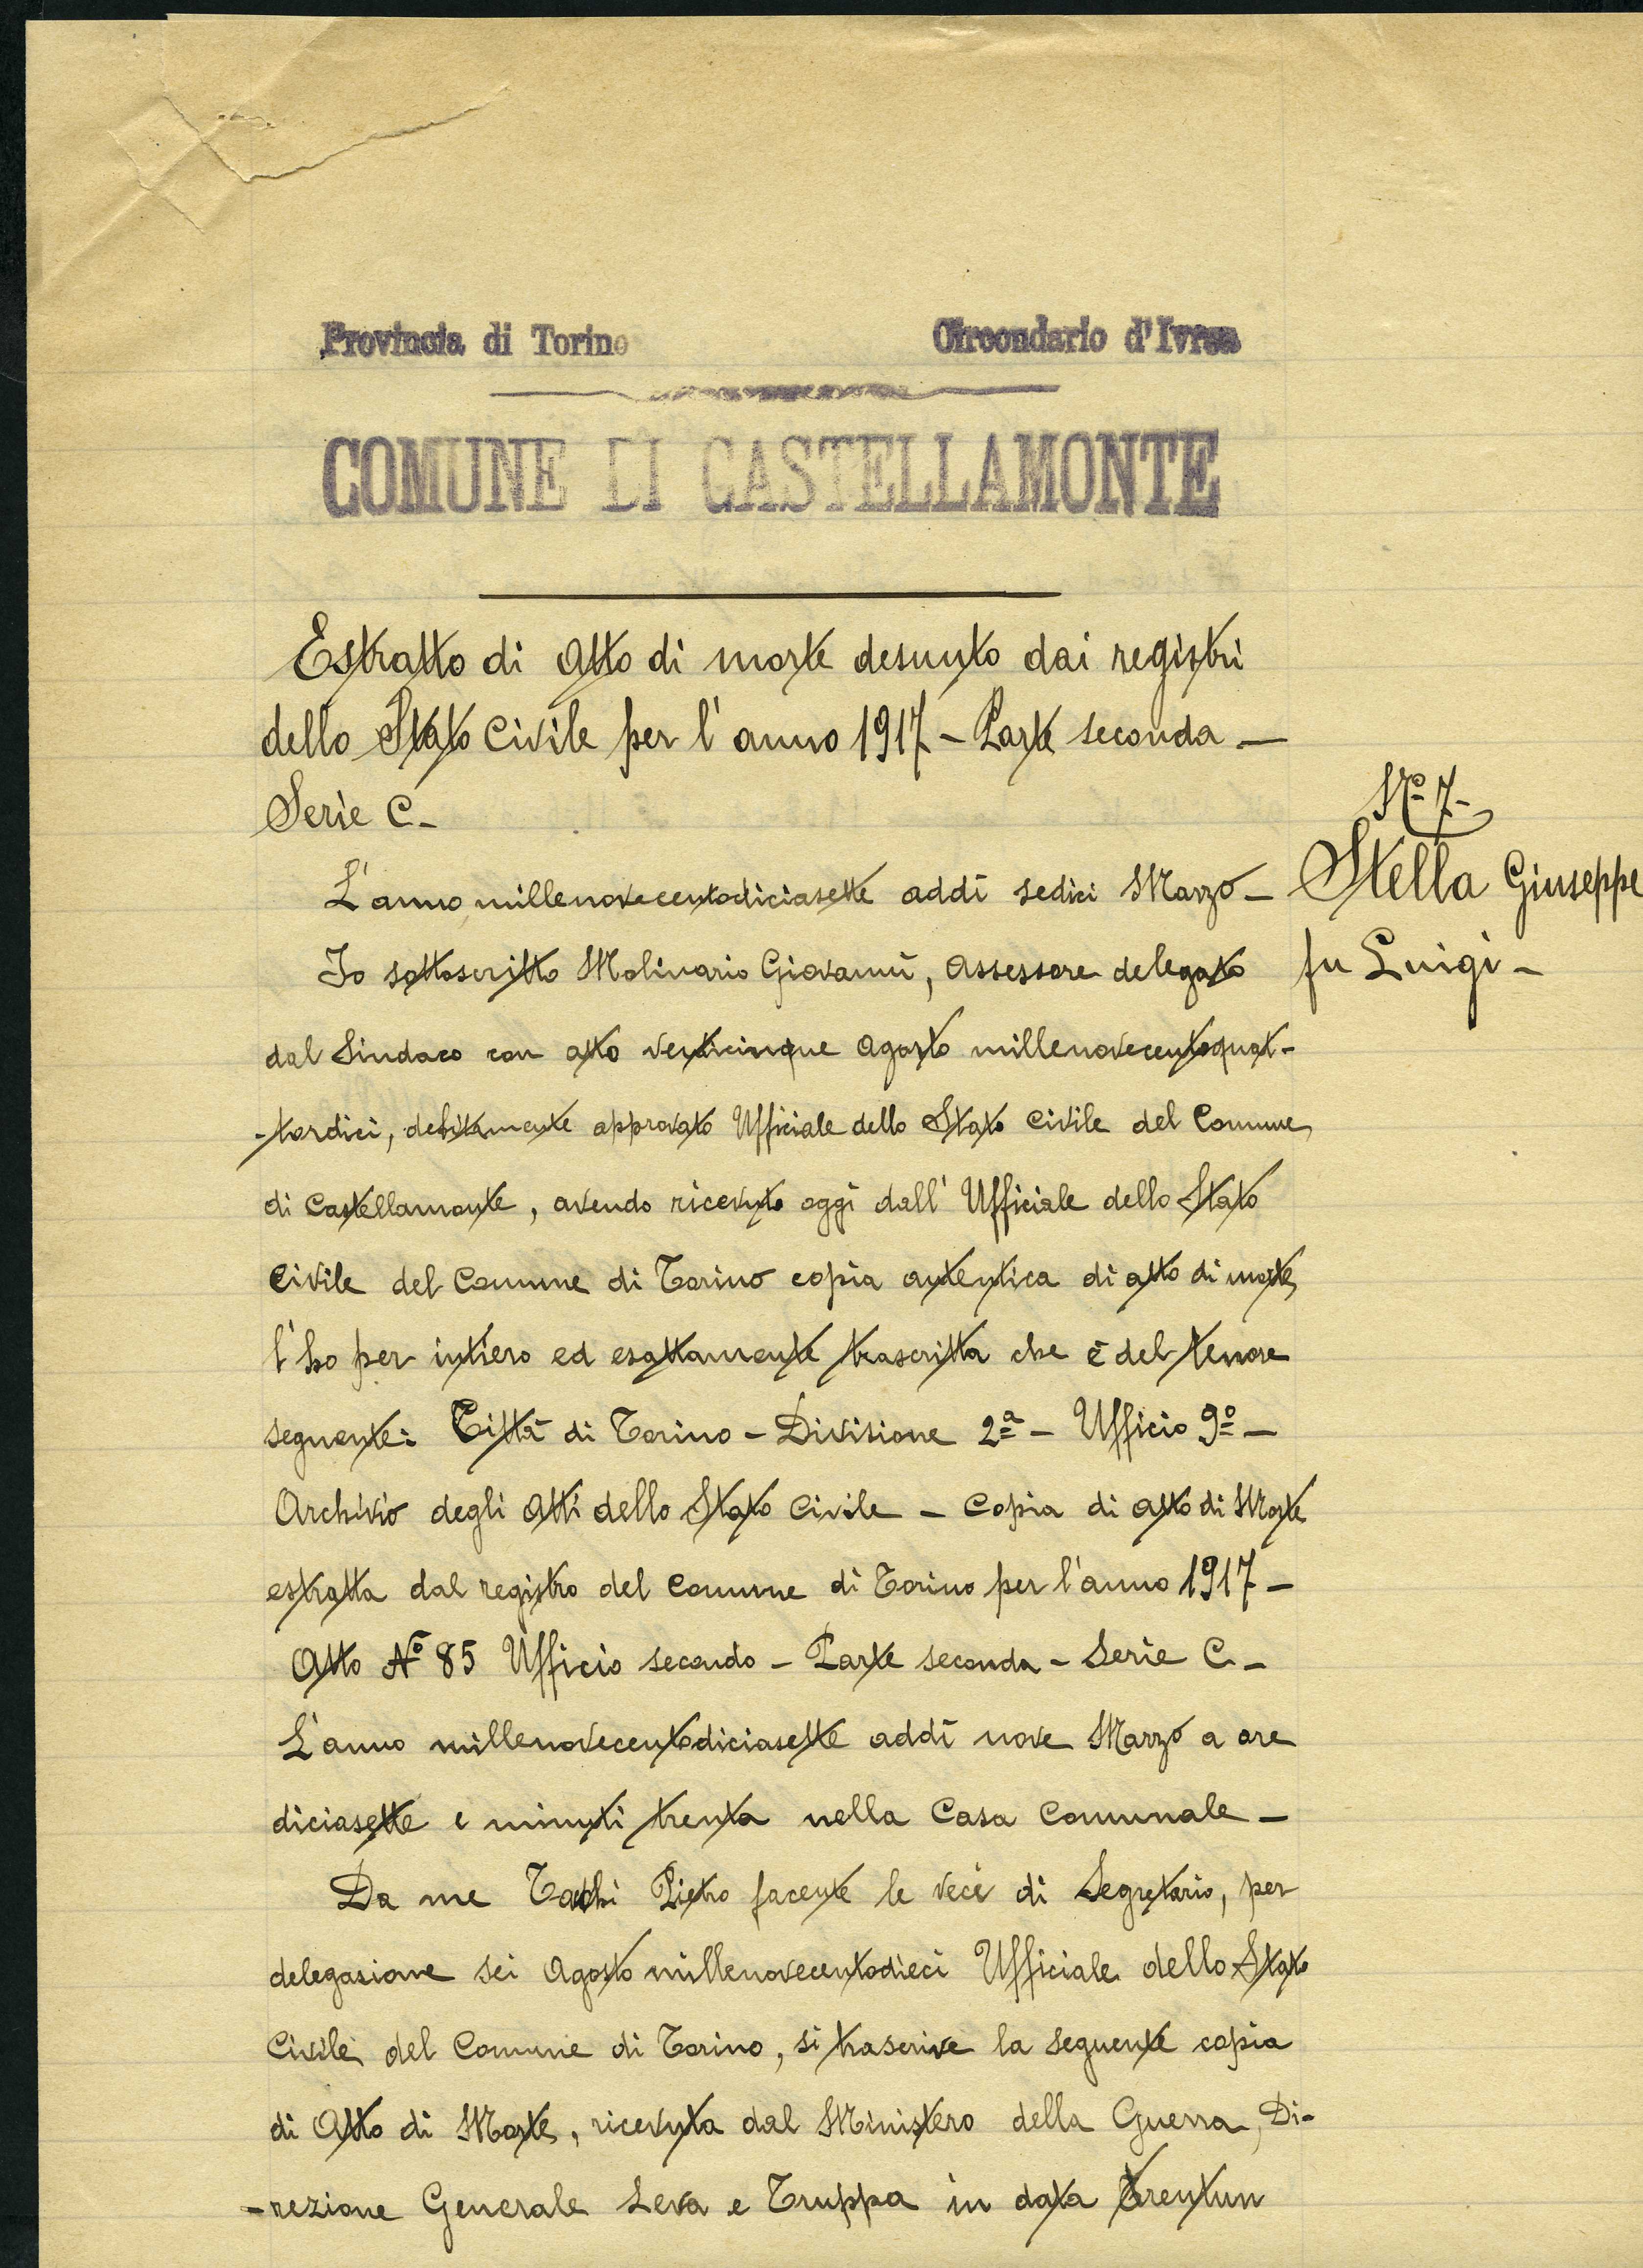 Provincia di Torino Circondario d'Ivrea
COMUNE DI CASTELLAMONTE
Estratto di atto di morte desunto dai registri
dello Stato Civile per l'anno 1917 - Parte seconda -
Serie C -
N.º 7 -
Stella Giuseppe
fu Luigi -
L'anno millenovecentodiciasette addì sedici Marzo -
Io sottoscritto Molinario Giovanni, Assessore delegato
dal Sindaco con atto venticinque Agosto millenovecentoquat-
-tordici, debitamente approvato Ufficiale dello Stato Civile del Comune
di Castellamonte, avendo ricevuto oggi dall'Ufficiale dello Stato
Civile del Comune di Torino copia autentica di atto di morte
l'ho per intiero ed esattamente trascritta che è del tenore
seguente: Città di Torino - Divisione 2ª - Ufficio 9º -
Archivio degli Atti dello Stato Civile - Copia di atto di Morte
estratta dal registro del Comune di Torino per l'anno 1917 -
Atto Nº 85 Ufficio secondo - Parte seconda - Serie C -
L'anno millenovecentodiciasette addì nove Marzo a ore
diciasette e minuti trenta nella Casa Comunale -
Da me Pietro facente le veci di Segretario, per
delegasione sei Agosto millenovecentodieci Ufficiale dello Stato
Civile del Comune di Torino, si trascrive la seguente copia
di Atto di Morte, ricevuta dal Ministero della Guerra, Di-
-rezione Generale Leva e Truppa in data trentun